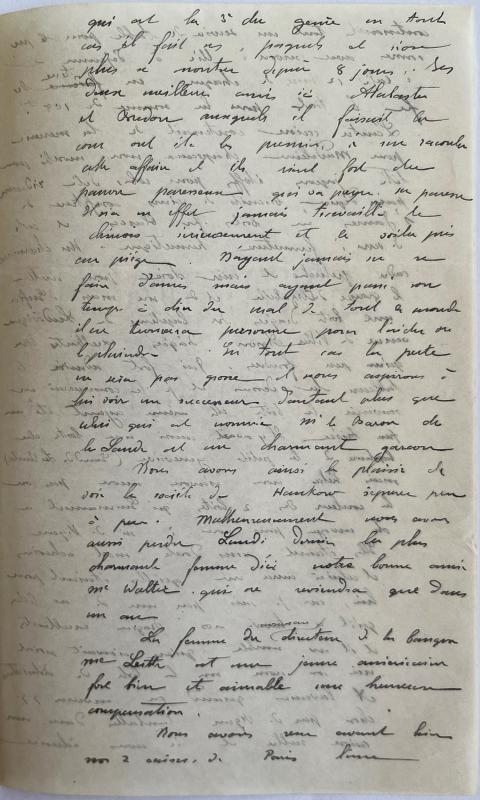 qui est la 3e du genre en tout
cas il fait ses paquets et n'ose
plus se montrer depuis 8 jours. Ses
deux meilleurs amis ici Alabaster
et Bredon auxquels il faisait la
cour ont été les premiers à me raconter
cette affaire et ils rient fort du
pauvre paresseux pris au piège. sa paresse
Il n'a en effet jamais travaillé le
chinois sérieusement et le voilà pris
au piège. N'ayant jamais su se
faire d'amis mais ayant passé son
temps à dire du mal de tout le monde
il ne trouvera personne pour l'aider ou
le plaindre. En tout cas la perte
ne sera pas grosse et nous aspirons à
lui voir un successeur d'autant plus que
celui qui est nommé Mr le Baron de
la Lande est un charmant garçon
Nous avons aussi le plaisir de
voir la société de Hankow s'épurer peu
à peu. Malheureusement nous avons
aussi perdu Lundi dernier la plus
charmante femme d'ici notre bonne amie
Me Walter qui ne reviendra que dans
un an.
La femme du directeur de la banque
Me Leith est une jeune américaine
fort bien et aimable une heureuse
compensation.
Nous avons reçu avant hier
nos 2 caisses de Paris l'une